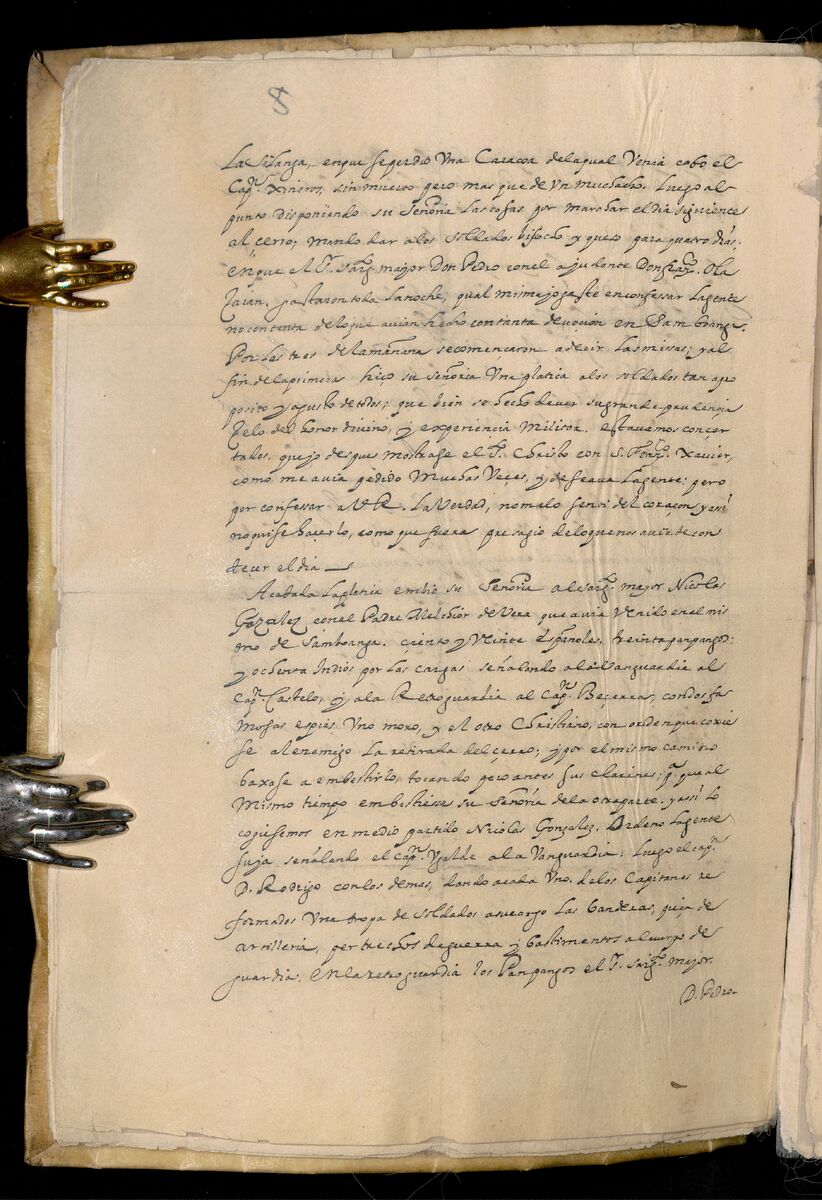 8
La Silanga, en que se perdio Vna Caracoa de la qual Venia cabo el
Capn. Ximenes, sin muerto pero mas que de Vn muchacho. Luego al
punto disponiendo su Señoria las cosas por marchar el dia siguiente
al cerro; mando dar a los soldados biscocho y queso para quatro dias,
en que el P. Sarg. mayor Don Pedro con el ajudante Don fran. Ola
pastaron toda la noche, qual mi me jo gaste en confessar la gente
no contenta de lo que auian hecho con tanta deuoción en Samboanga.
Por las tres de la mañana se comencaron a decir las missas; y al
fin de la primera hiço su señoria Vna platica a los soldados tan apro
posito y a gusto de todos; que bien se hecho de ver su grande prudencia
Zelo del honor diuino, y experiencia Militar. estauamos conçer
tados, que jo despues mostrase el S. Christo con S. Franc. Xavier,
como me auia pedido Muchas Veces, y deseaua la gente; pero
por confessar a VR. la Verdad, no malo senti del coraçon y assi
no quise haçerlo, como que fuera presagio de lo que nos auia de con
teçer el dia
Acabada la platica embio su Señoria al Sarg. mayor Nicolas
Gonzalez con el Padre Melchior de Vera que auia Venido en el mis
mo de Samboanga. çiento y Veinte Españoles, treinta panpangos:
y ochenta Indios por las cargas señalando a la Vanguardia al
Capn. Castelo, y a la Retroguardia al Capn. Beçerra, con dos fa
mosas espias Vno moro, y el otro Christiano, con orden que corie
se al enemigo la retirada del çerro; y por el mismo camino
baxase a embestirlo, tocando pero antes sus clarines; pa. que al
Mismo tiempo embistiese su Señoria de la otra parte. y assi lo
cogiesemos en medio partido Nicolas Gonzalez, Ordeno la gente
suja señalando el Capn. Vgalde a la Vanguardia; luego el capn.
D. Rodrigo con los demas, dando a cada Vno de los Capitanes re
formados Vna tropa de soldados a su cargo las banderas, pieça de
artilleria, pertrechos de guerra y bastimentos al cuerpo de
guardia. En la retroguardia los Panpangos el P. Sarg. Mayor.
D. Pedro